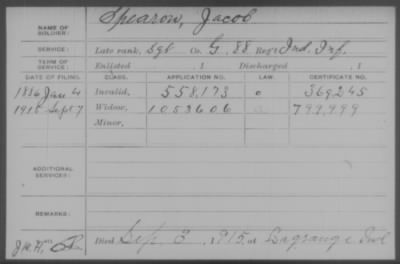 NAME OF SOLDIER: Spearow, Jacob
SERVICE: Late rank, Sgt Co. G, 88 Reg't Ind. Inf.
TERM OF SERVICE: Enlisted , 1 Discharged , 1
DATE OF FILING. CLASS. APPLICATION NO. LAW. CERTIFICATE NO.
1886 June 4 Invalid, 558,173 369245
1915 Sept 7 Widow, 1053606 799,999
Minor,
ADDITIONAL SERVICES:
REMARKS:
Died Sep 3, 1915, at Lagrange Ind